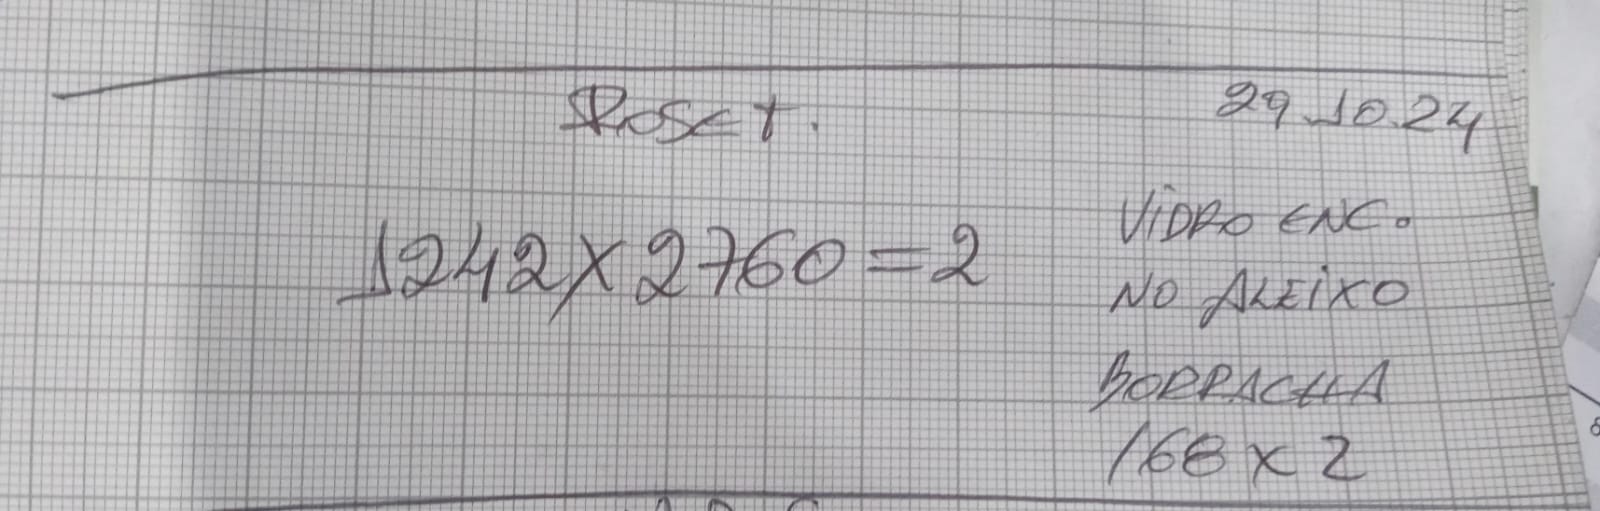 Roset. 29.10.24
1242 X 2760 = 2
VIDRO ENC.
NO ALEIXO
BORRACHA
168 x 2